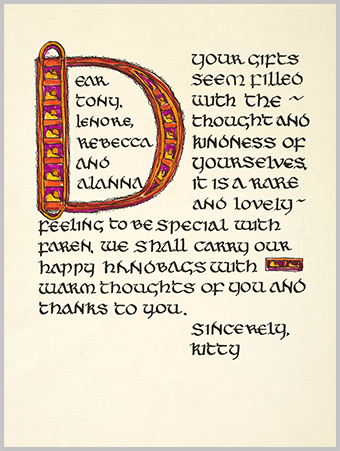 Dear
Tony,
Lenore,
Rebecca
and
Alanna
Your gifts
seem filled
with the ~
thought and
kindness of
yourselves.
It is a rare
and lovely ~
feeling to be special with
Faren. We shall carry our
happy hnndbags with
warm thoughts of you and
thanks to you.
Sincerely,
Kitty